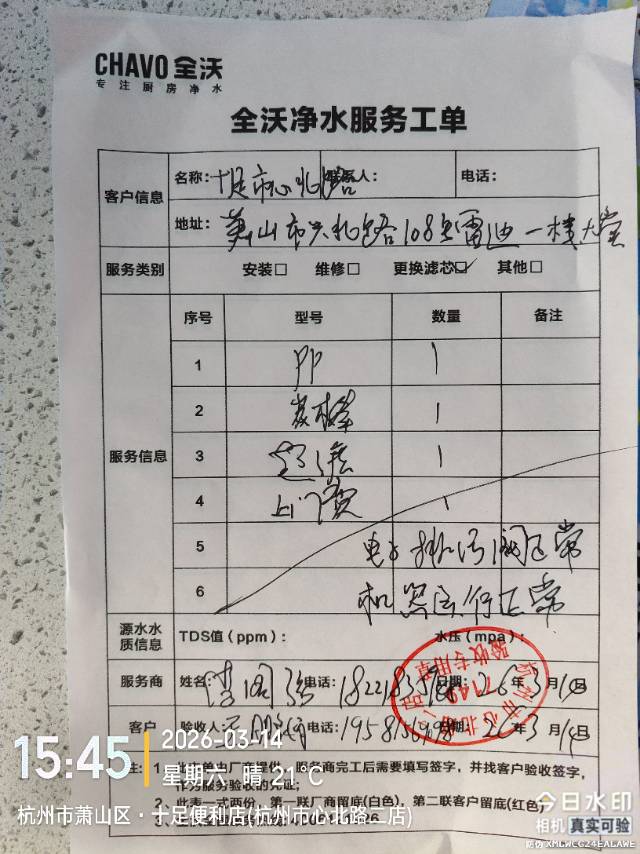 CHAVO 全沃
专注厨房净水
全沃净水服务工单
客户信息 名称：十足市心北路 联系人： 电话：
地址：萧山市心北路108号雷迪一楼大堂
服务类别 安装□ 维修□ 更换滤芯☑ 其他□
服务信息 序号 型号 数量 备注
1 PP 1
2 炭棒 1
3 超滤 1
4 上门费 1
5 电子排污阀正常
6 机器运行正常
源水水质信息 TDS值（ppm）： 水压（mpa）：
服务商 姓名 电话： 日期： 26年3月14日
客户 验收人： 电话： 26年3月14日
验收专用章
注：1、
服务商完工后需要填写签字，并找客户验收签字，
作为服务验收的凭证；
2、此表一式两份，第一联厂商留底（白色），第二联客户留底（红色）
15:45
2026-03-14
星期六 晴 21°C
杭州市萧山区·十足便利店(杭州市心北路二店)
今日水印
相机 真实可验
防伪 XMLWCG24EALAWE